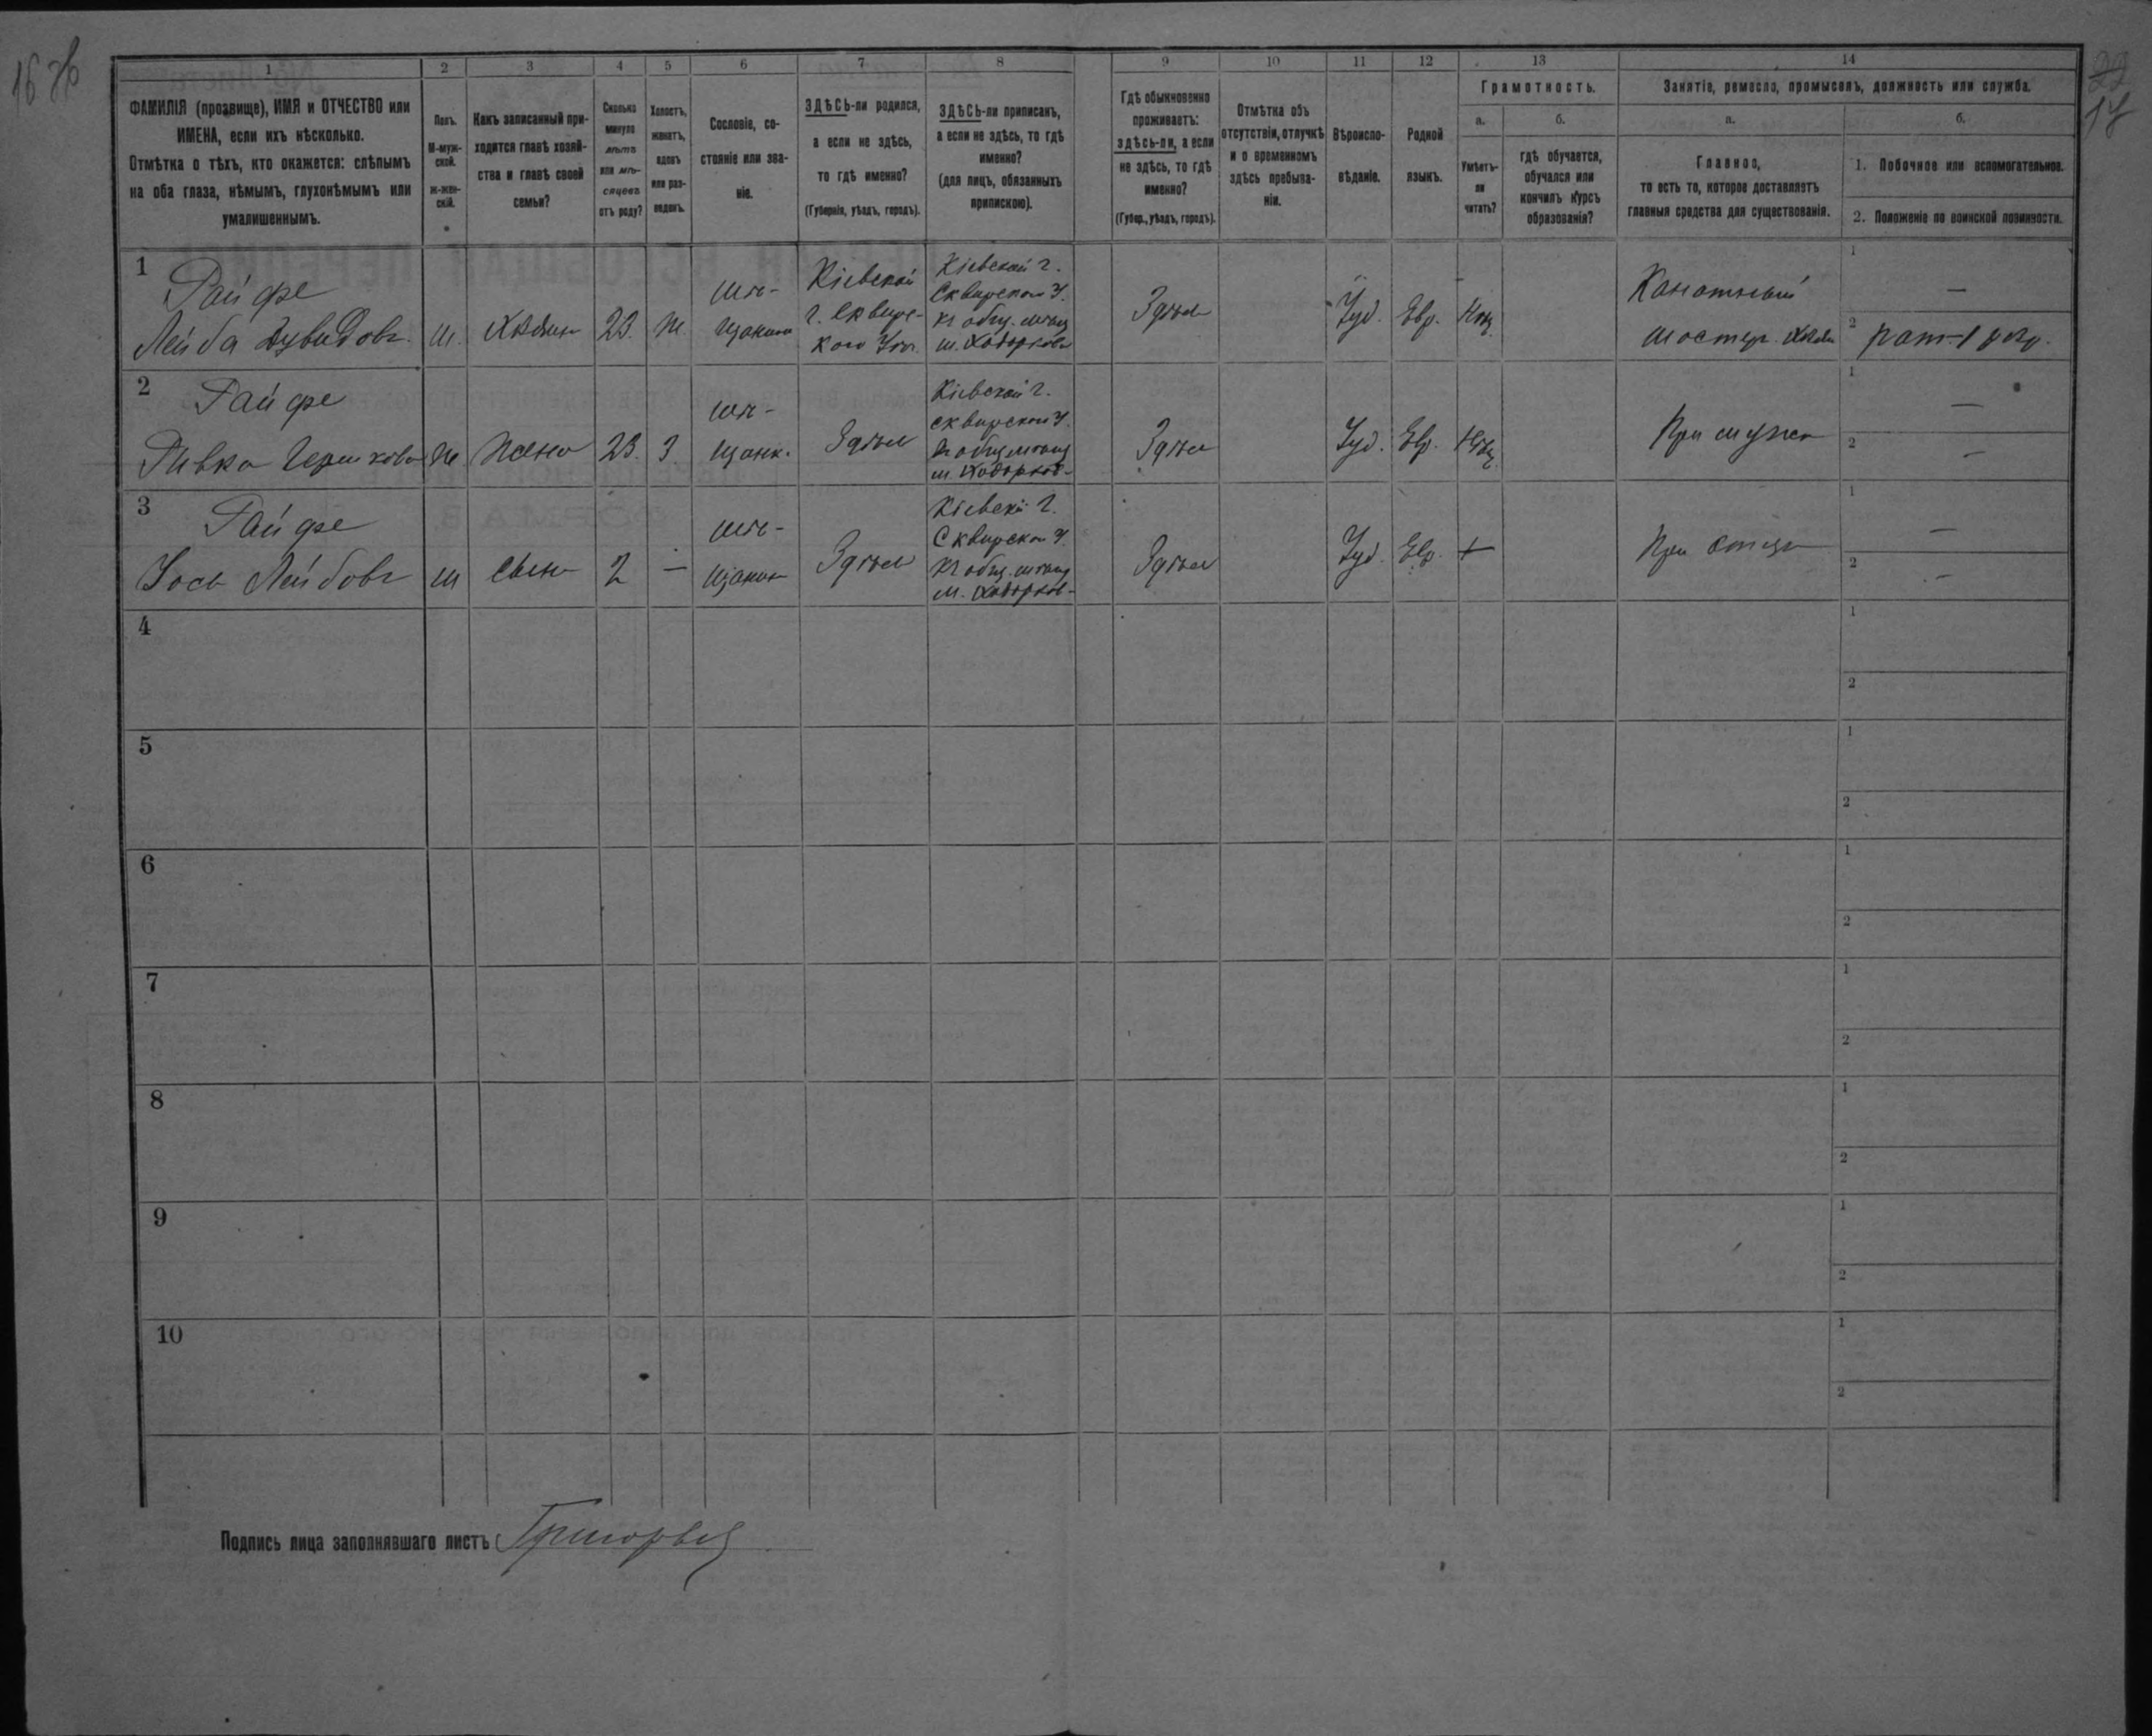 16 об
22
17
1
2
3
4
5
6
7
8
9
10
11
12
13
14
ФАМИЛІЯ (прозвище), ИМЯ и ОТЧЕСТВО или
ИМЕНА, если ихъ нѣсколько.
Отмѣтка о тѣхъ, кто окажется: слѣпымъ
на оба глаза, нѣмымъ, глухонѣмымъ или
умалишеннымъ.
Полъ.
М-муж-
ской.
ж-жен-
скій.
Какъ записанный при-
ходится главѣ хозяй-
ства и главѣ своей
семьи?
Сколько
минуло
лѣтъ
или мѣ-
сяцевъ
отъ роду?
Холостъ,
женатъ,
вдовъ
или раз-
веденъ.
Сословіе, со-
стояніе или зва-
ніе.
ЗДѢСЬ-ли родился,
а если не здѣсь,
то гдѣ именно?
(Губернія, уѣздъ, городъ).
ЗДѢСЬ-ли приписанъ,
а если не здѣсь, то гдѣ
именно?
(для лицъ, обязанныхъ
припискою).
Гдѣ обыкновенно
проживаетъ:
здѣсь-ли, а если
не здѣсь, то гдѣ
именно?
(Губер., уѣздъ, городъ).
Отмѣтка объ
отсутствіи, отлучкѣ
и о временномъ
здѣсь пребыва-
ніи.
Вѣроиспо-
вѣданіе.
Родной
языкъ.
Грамотность.
а.
Умѣетъ-
ли
читать?
б.
гдѣ обучается,
обучался или
кончилъ курсъ
образованія?
Занятіе, ремесло, промыселъ, должность или служба.
а.
Главное,
то есть то, которое доставляетъ
главныя средства для существованія.
б.
1. Побочное или вспомогательное.
2. Положеніе по воинской повинности.
1
Райфе
Лейба Дувидовъ
м.
Хозяинъ
23.
ж.
мѣ-
щанинъ
Кіевской
г. Сквирс-
кого Уѣз.
Кіевской г.
Сквирскои У.
къ общ. мѣщ
м. Ходорковъ
Здѣсь
Іуд.
Евр.
Канатный
мастер. хозяинъ
1
—
2
рат. 1 раз.
2
Райфе
Ривка Гершкова
ж
жена
23.
З.
мѣ-
щанк.
Здѣсь
Кіевской г.
сквирскои У.
къ общ мѣщ
м. Ходорков-
Здѣсь
Іуд.
Евр.
При мужѣ
1
—
2
—
3
Райфе
Іось Лейбовъ
м
сынъ
2
—
мѣ-
щанин
Здѣсь
Кіевской г.
Сквирскои У.
къ общ. мѣщ
м. Ходорков-
Здѣсь
Іуд.
Евр.
+
При отцѣ
1
—
2
—
4
1
2
5
1
2
6
1
2
7
1
2
8
1
2
9
1
2
10
1
2
Подпись лица заполнявшаго листъ